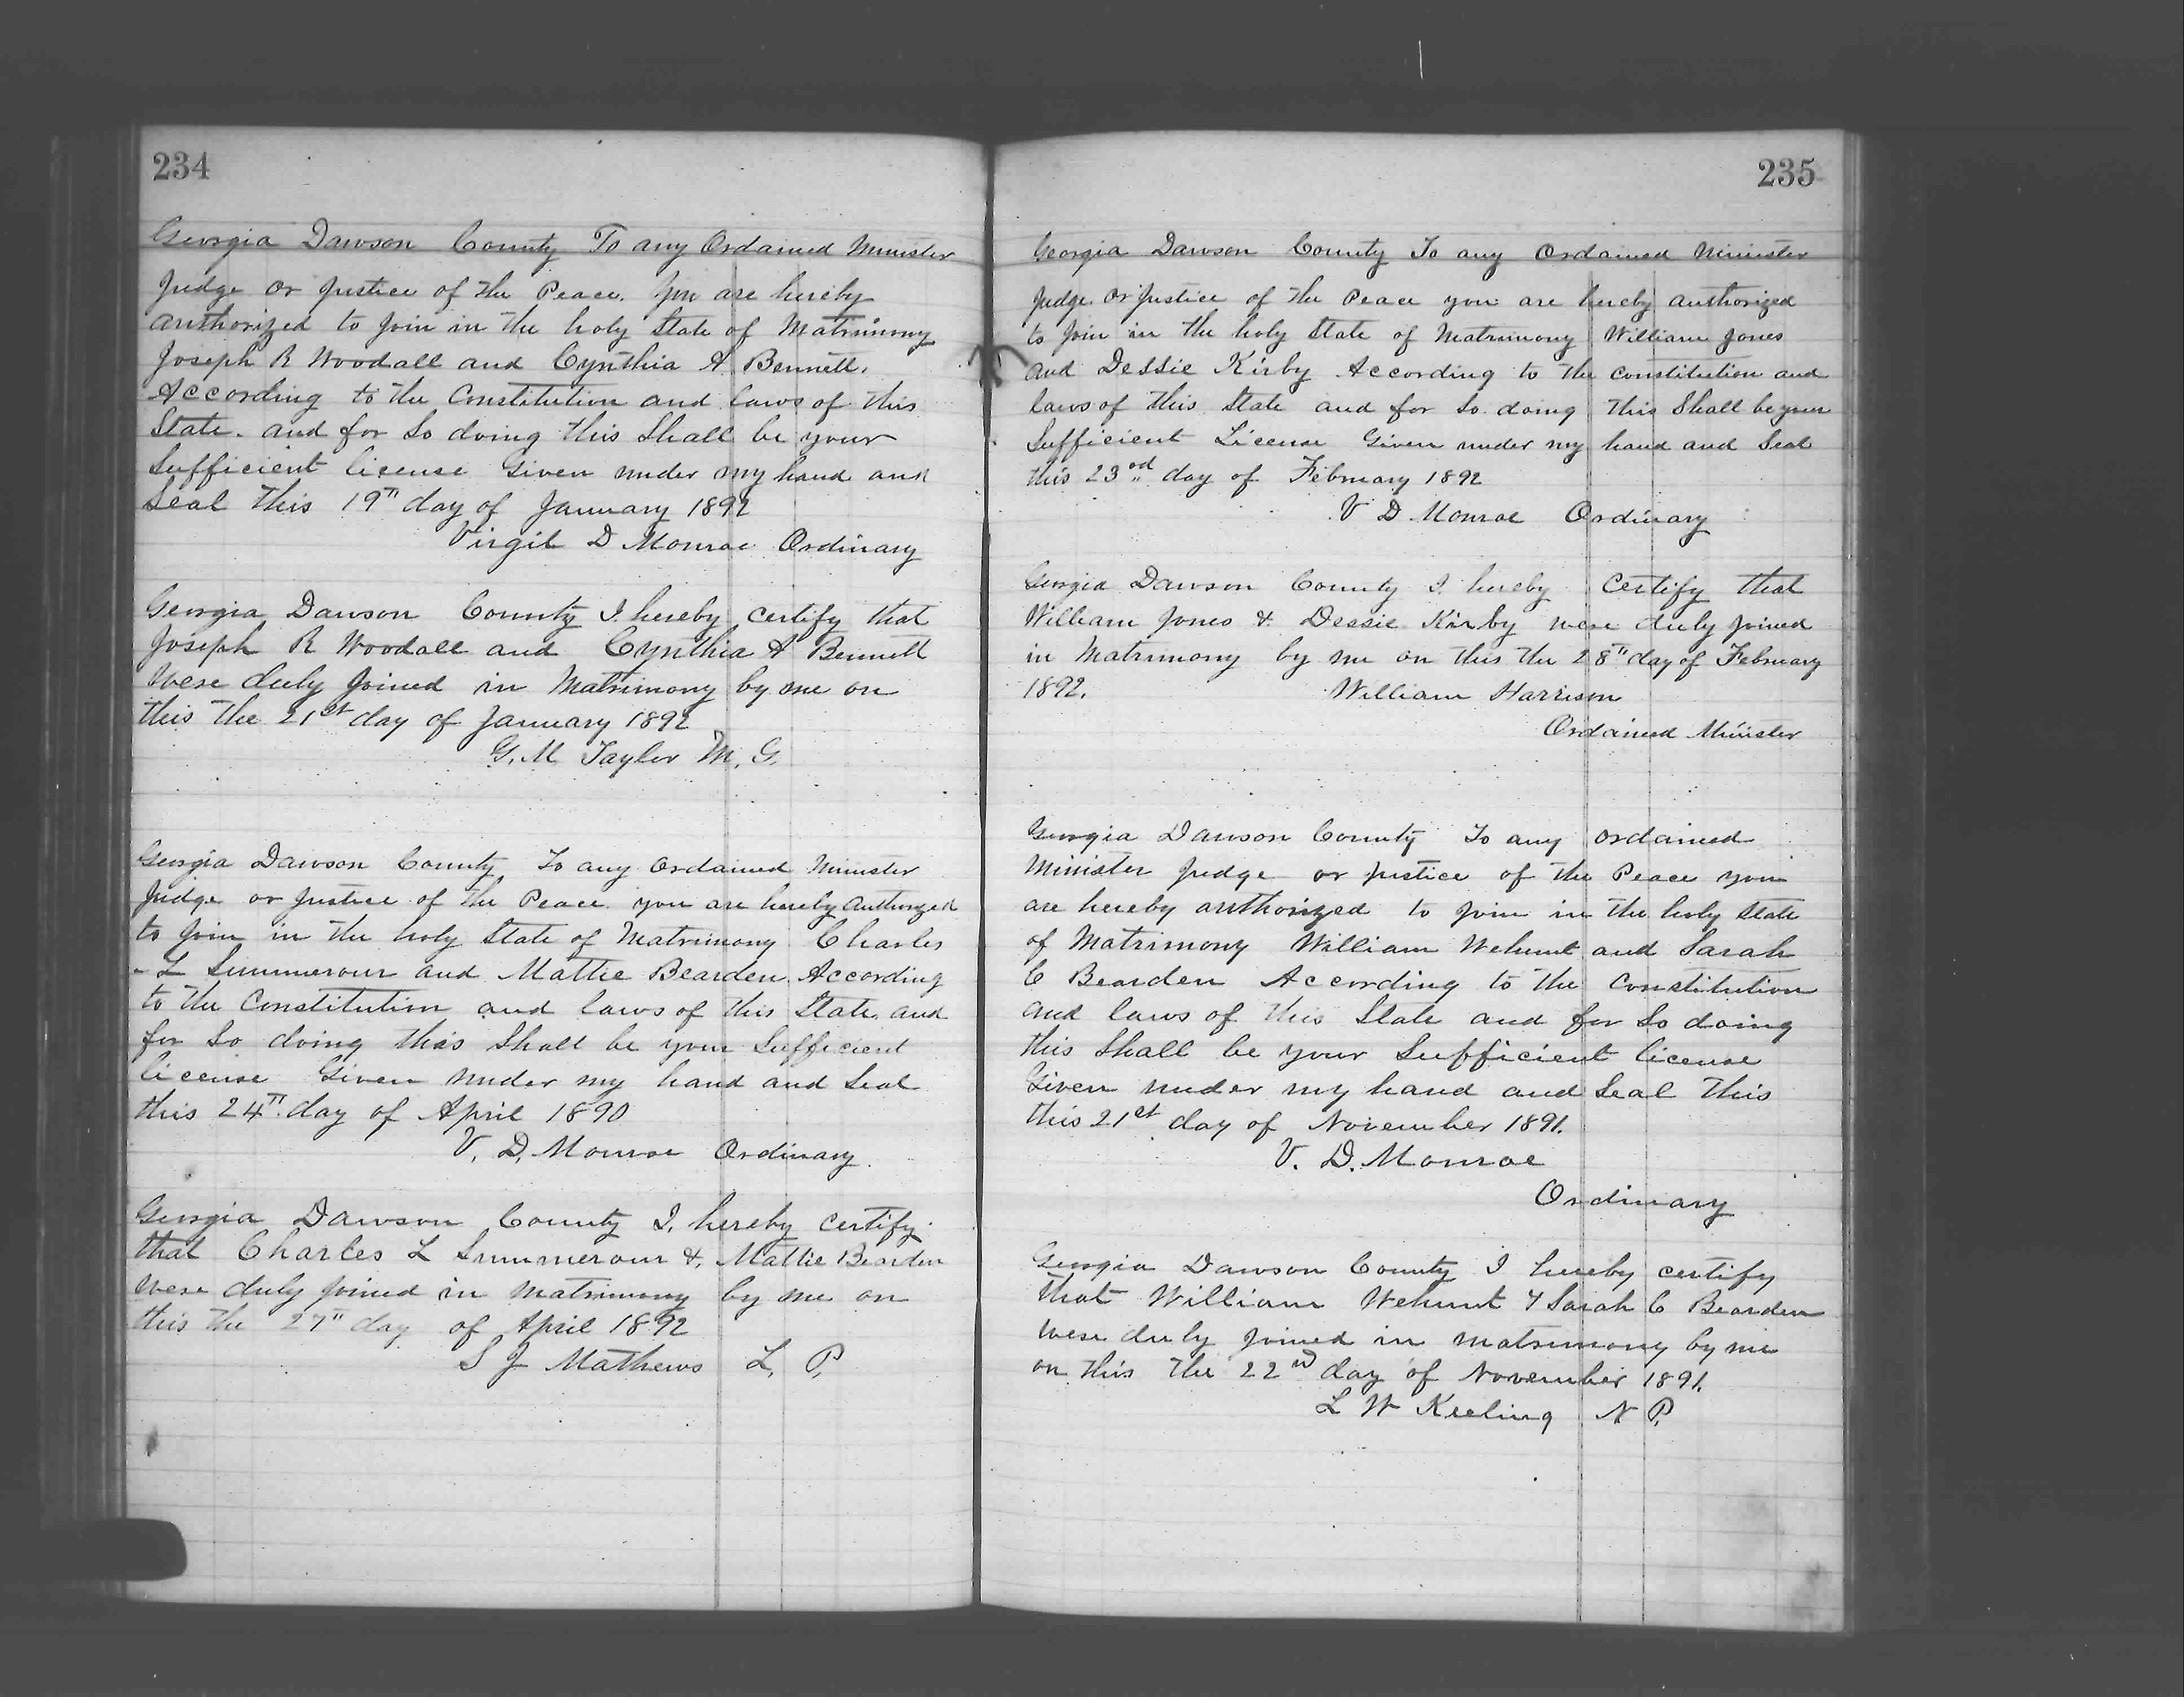 234
Georgia Dawson County To any Ordained Minister
Judge or Justice of the Peace. You are hereby
authorized to Join in the holy State of Matrimony
Joseph R Woodall and Cynthia A Bennett.
According to the Constitution and laws of this
State. and for So doing this Shall be your
Sufficient license Given under my hand and
Seal this 19th day of January 1892
Virgil D Monroe Ordinary
Georgia Dawson County I hereby certify that
Joseph R Woodall and Cynthia A Bennett
were duly Joined in Matrimony by me on
this the 21st day of January 1892
G. M. Taylor M. G.
Georgia Dawson County To any Ordained Minister
Judge or Justice of the Peace you are hereby Authorized
to Join in the holy State of Matrimony Charles
L Summerour and Mattie Bearden According
to the Constitution and laws of this State and
for So doing this Shall be your Sufficient
license Given under my hand and Seal
this 24th day of April 1890
V. D. Monroe Ordinary.
Georgia Dawson County I, hereby certify
that Charles L Summerour &, Mattie Bearden
were duly Joined in Matrimony by me on
this the 27th day of April 1892
S J Mathews L. P.
235
Georgia Dawson County To any Ordained Minister
Judge Or Justice of the Peace you are hereby authorized
to Join in the holy State of Matrimony William Jones
and Dessie Kirby According to the constitution and
laws of this State and for So doing this Shall be your
Sufficient License Given under my hand and Seal
this 23rd day of February 1892
V D Monroe Ordinary
Georgia Dawson County I hereby Certify that
William Jones & Dessie Kirby were duly Joined
in Matrimony by me on this the 28th day of February
1892. William Harrison
Ordained Minister
Georgia Dawson County To any ordained
Minister Judge or Justice of the Peace you
are hereby authorized to Join in the holy State
of Matrimony William Wehunt and Sarah
C Bearden According to the Constitution
and laws of this State and for So doing
this Shall be your Sufficient license
Given under my hand and Seal This
this 21st day of November 1891.
V. D. Monroe
Ordinary
Georgia Dawson County I hereby certify
that William Wehunt & Sarah C Bearden
were duly Joined in matrimony by me
on this the 22nd day of November 1891.
L W Keeling N P.